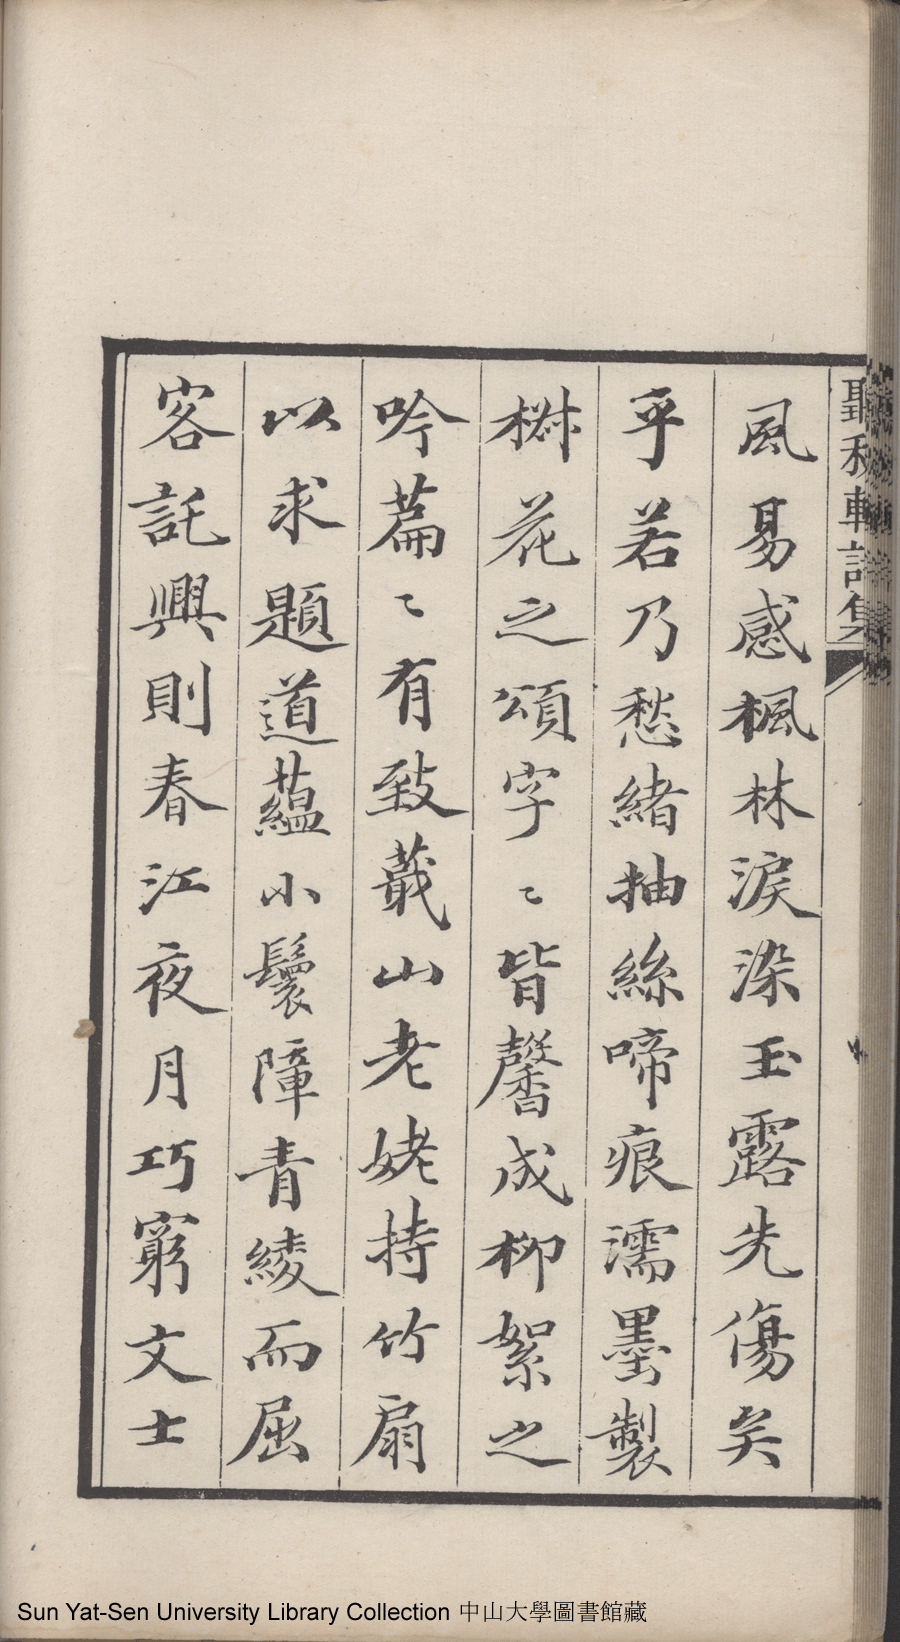 聽秋軒詩集
風易感楓林淚染玉露先傷矣
乎若乃愁緒抽絲啼痕濡墨製
椒花之頌字〻皆馨成柳絮之
吟篇〻有致蕺山老姥持竹扇
以求題道蘊小鬟障青綾而屈
客託興則春江夜月巧窮文士
Sun Yat-Sen University Library Collection 中山大學圖書館藏